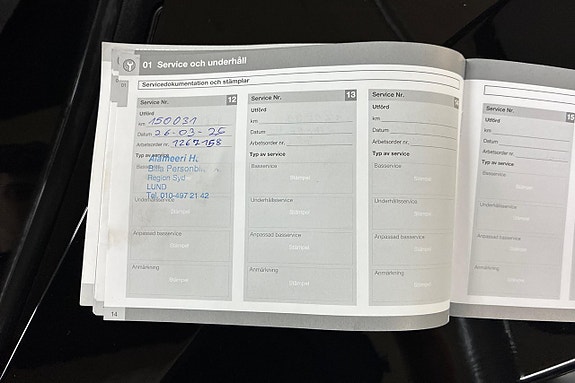 01 Service och underhåll
01
Servicedokumentation och stämplar
Service Nr. 12
Utförd
km 150031
Datum 26-03-25
Arbetsorder nr. 1267158
Typ av service
Alameeri H.
Bilia Personbil
Region Syd
LUND
Tel. 010-497 21 42
Underhållsservice
Stämpel
Anpassad basservice
Stämpel
Anmärkning
Stämpel
Service Nr. 13
Utförd
km
Datum
Arbetsorder nr.
Typ av service
Basservice
Stämpel
Underhållsservice
Stämpel
Anpassad basservice
Stämpel
Anmärkning
Stämpel
Service Nr. 14
Utförd
km
Datum
Arbetsorder nr.
Typ av service
Basservice
Stämpel
Underhållsservice
Stämpel
Anpassad basservice
Stämpel
Anmärkning
Stämpel
Service Nr. 15
Utförd
km
Datum
Arbetsorder nr.
Typ av service
Basservice
Stämpel
Underhållsservice
Stämpel
Anpassad basservice
Stämpel
Anmärkning
Stämpel
14